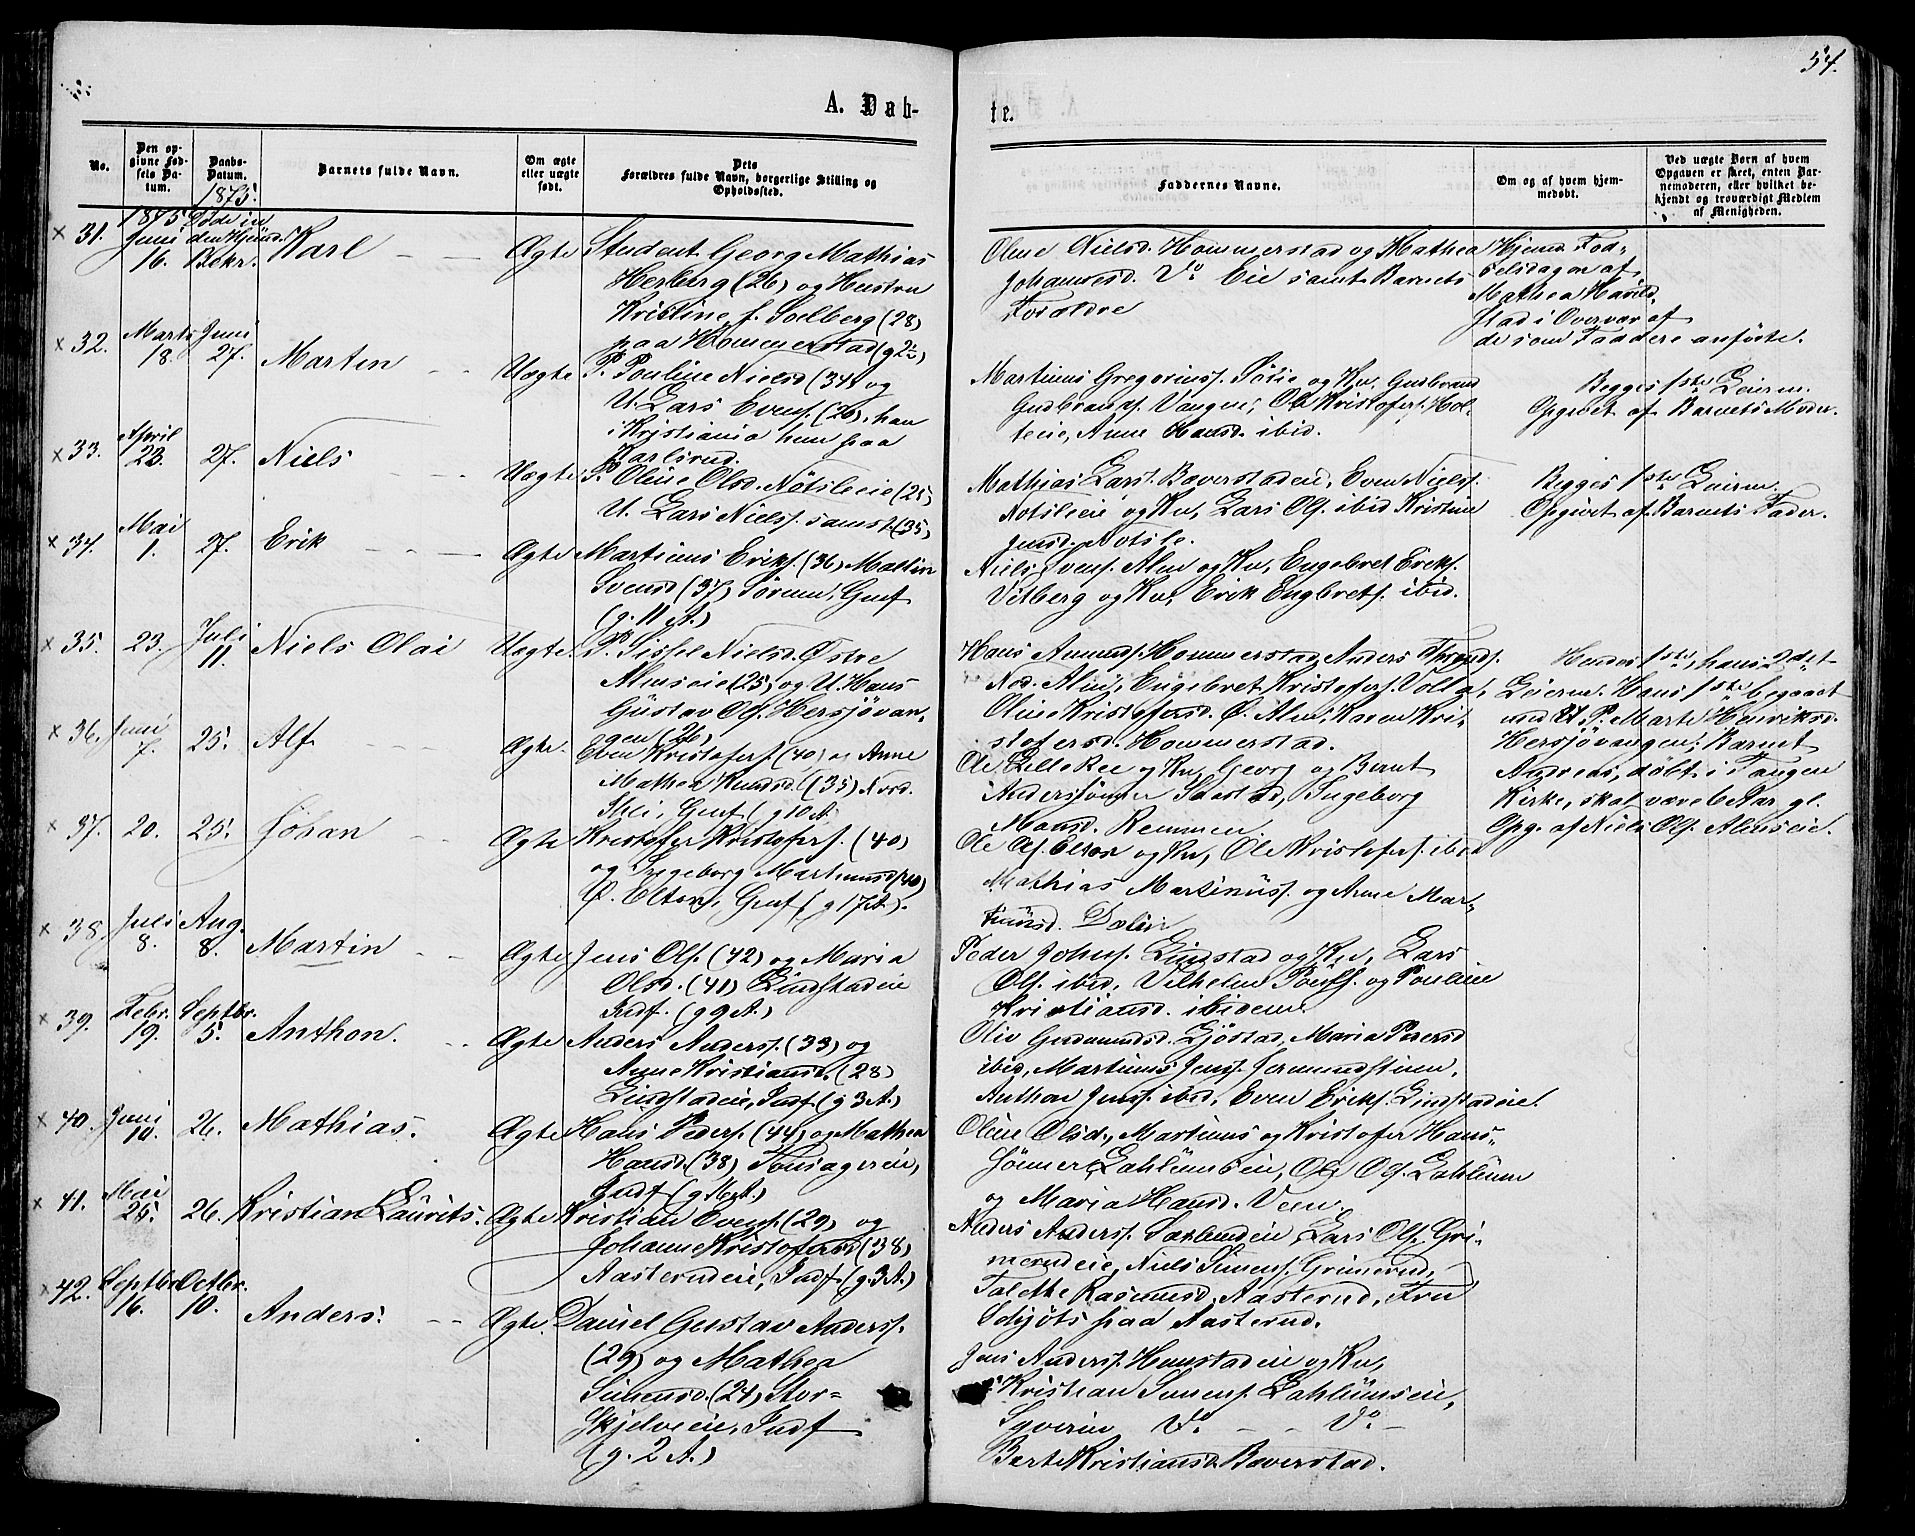 54.
A. Dab-
te.
No.
Den op-
givne Fød-
sels Da-
tum.
Daabs-
Datum.
1875.
Barnets fulde Navn.
Om ægte
eller uægte
født.
Dets
Forældres fulde Navn, borgerlige Stilling og
Opholdssted.
Faddernes Navne.
Om og af hvem hjem-
medøbt.
Ved uægte Børn af hvem
Opgaven er skeet, enten Bar-
nemoderen, eller hvilket be-
kjendt og troværdigt Medlem
af Menigheden.
× 31.
1875
Juni
16.
Døde in
den Hjemd.
Bekr.
Karl
Ægte
Student Georg Mathias
Herberg (26) og Hustru
Kristine f. Solberg (28)
paa Hommerstad (g 2
Oline Nielsd. Hommerstad og Mathea
Johannesd. Do Eie samt Barnets
Forældre
Hjemd. Fød-
selsdagen af
Mathea
stad i Overvær af
de som Faddere anførte.
× 32.
Marts
18.
Juni
27.
Martin
Uægte
P. Pouline Nielsd (34) og
U. Lars Evens. (26), han
i Kristiania hun paa
Karlsrud.
Martinus Gregoriuss. Sölie og Kv, Gudbrand
Gudbrands. Vangen, Ole Kristofers. Hol-
teie, Anne Hansd. ibid.
Begges 1ste Leierm.
Opgivet af Barnets Moder.
× 33.
April
23.
27.
Niels
Uægte
P. Oline Olsd. Nötsleeie (25)
U. Lars Niels. samst. (35)
Mathias Lars. Baverstadeie, Even Niels.
Notsleeie og Kv, Lars Ols. ibid Kristine
Jensd. Notsle.
Begges 1ste Leierm.
Opgivet af Barnets Fader.
× 34.
Mai
1.
27.
Erik
Ægte
Martinus Eriks. (36) Mallin
Svensd (37) Sörum, Gmf
(g. 11 A.)
Niels Svens. Alm og Kv, Engebret Eriks.
Vitberg og Kv, Erik Engbrets. ibid.
× 35.
23.
Juli
11.
Niels Olai
Uægte.
P. Sissel Nielsd. Østre
Almseie (25) og U. Hans
Güstav Ols. Hersjövan-
gen (26)
Hans Amunds. Hommerstad, Anders
Ned. Alm, Engebret Kristofers. Volla,
Oline Kristofersd. Ø. Alm, Karen Kri-
stofersd. Hommerstad.
Hendes 1ste, hans 2det
Leierm. Hans 1ste begaaet
med P. Marte Henriksd.
Hersjövangen; Barnet
Andreas, döbt i Tangen
Kirke, skal være 6 Aar gl.
Opg. af Niels Ols. Almseie.
× 36.
Juni
7.
25.
Alf
Ægte.
Even Kristofers. (40) og Anne
Mathea Knudsd. (35) Nord.
Gmf (g 10 A.
Ole Lillekee og Kv, Georg og Bernt
Anderssönner Saastad, Ingeborg
Monsd. Remmen.
× 37.
20.
25.
Johan
Ægte
Kristofer Kristofers. (40)
og Ingeborg Martinusd (40)
Ø. Elton, Gmf (g 17 A).
Ole Ols. Elton og Kv, Ole Kristofers. ibid
Mathias Martinüss. og Anne Mar-
tinüsd. Dælin
× 38.
Juli
8.
Aug.
8.
Martin
Ægte
Jens Ols. (42) og Maria
Olsd. (41) Lindstadeie
Indf. (g 9 A.)
Peder Johns. Lindstad og Kv, Lars
Ols. ibid, Vilhelm Pouls. og Pouline
Kristiansd. ibidem.
× 39.
Febr.
19.
Septbr.
5.
Anthon.
Ægte
Anders Anders. (33) og
Anne Kristiansd. (28)
Lindstadeie, Indf (g 3 A.)
Oliv Gudmundsd. Ljöstad, Maria Pedersd
ibid, Martinus Jens. Jermundstuen,
Anthon Jens. ibid, Even Eriks. Lindstadeie.
× 40.
Juni
10.
26.
Mathias.
Ægte
Hans Peders. (44) og Mathea
Hansd (38) Tonsagereie,
Indf (g A.)
Oline Olsd, Martinus og Kristofer Hans-
sönner Lahlümseie, Ole Ols. Lahlüm
og Maria Hansd. Veen.
× 41.
Mai
25.
26.
Kristian Laürits.
Ægte
Kristian Evens. (29) og
Johanne Kristofersd (38)
Aasterudeie, Indf (g. 3 A.)
Anders Anders. Sæhundeie, Lars Ols. Gri-
merudeie, Niels Simens. Grimerud,
Tolette Rasmusd. Aasterud, Fru
Schjöts paa Aasterud.
× 42.
Septbr.
16.
Octbr.
10.
Anders.
Ægte.
Daniel Gustav Anders.
(29) og Mathea
Simensd. (24) Stor-
Skjelveeie, Indf
(g. 2 A.)
Jens Anders. Hemstadeie og Kv,
Kristian Simens. Lahlümseie,
Syverin Do. – – Do. –
Berte Kristiansd. Baverstad.